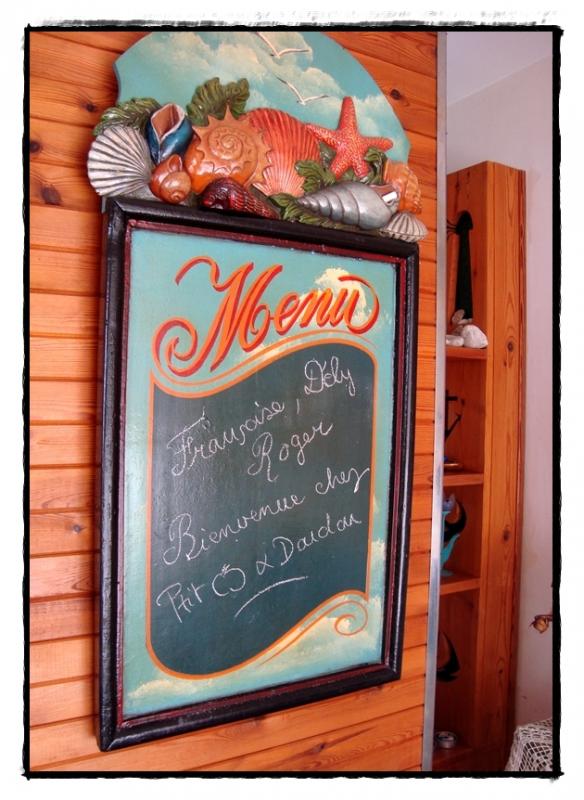 Menu
Françoise, Dély
Roger
Bienvenue chez
Ptit & Doudou